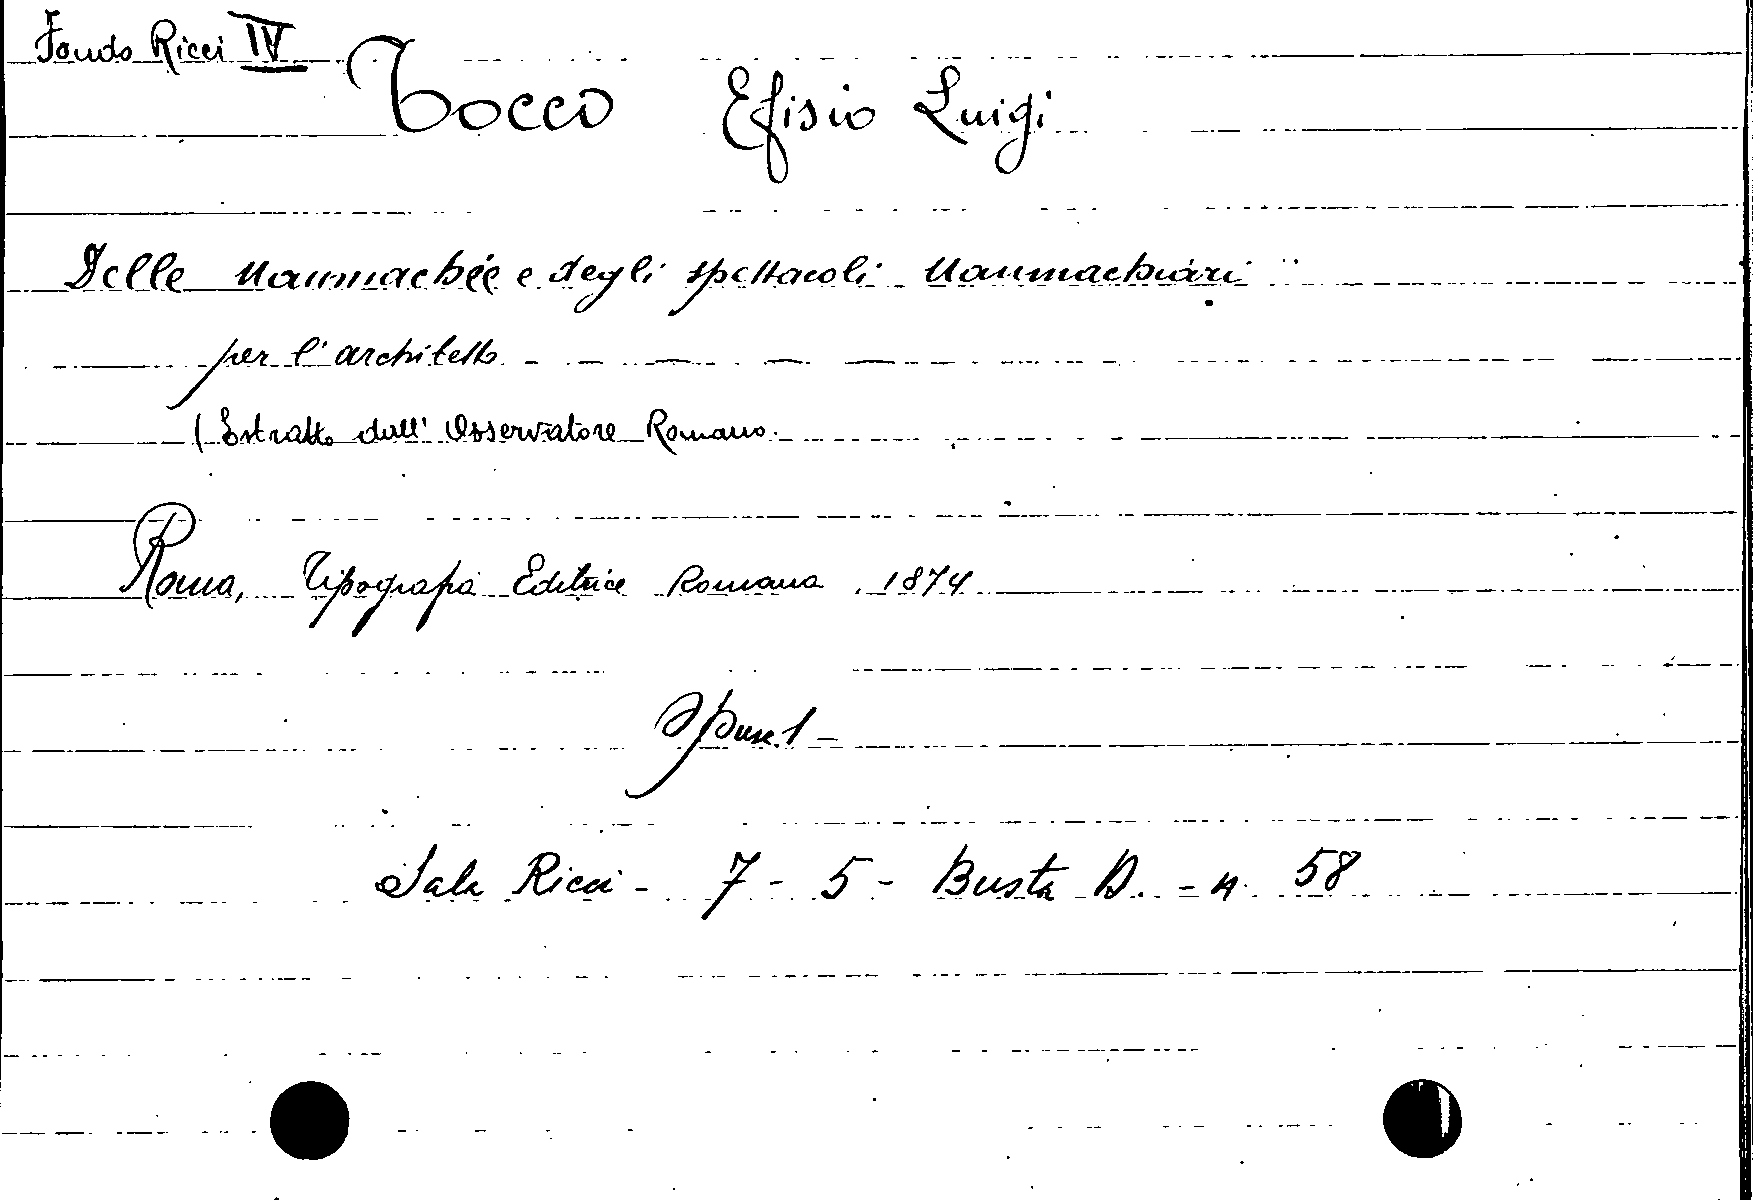 Fondo Ricci IV
Tocco Efisio Luigi
Delle Naumachie e degli spettacoli Naumachiari
per l'architetto
(Estratto dall' Osservatore Romano.
Roma, Tipografia Editrice Romana, 1874
opusc. 1 -
Sala Ricci - 7 - 5 - Busta D. - n. 58